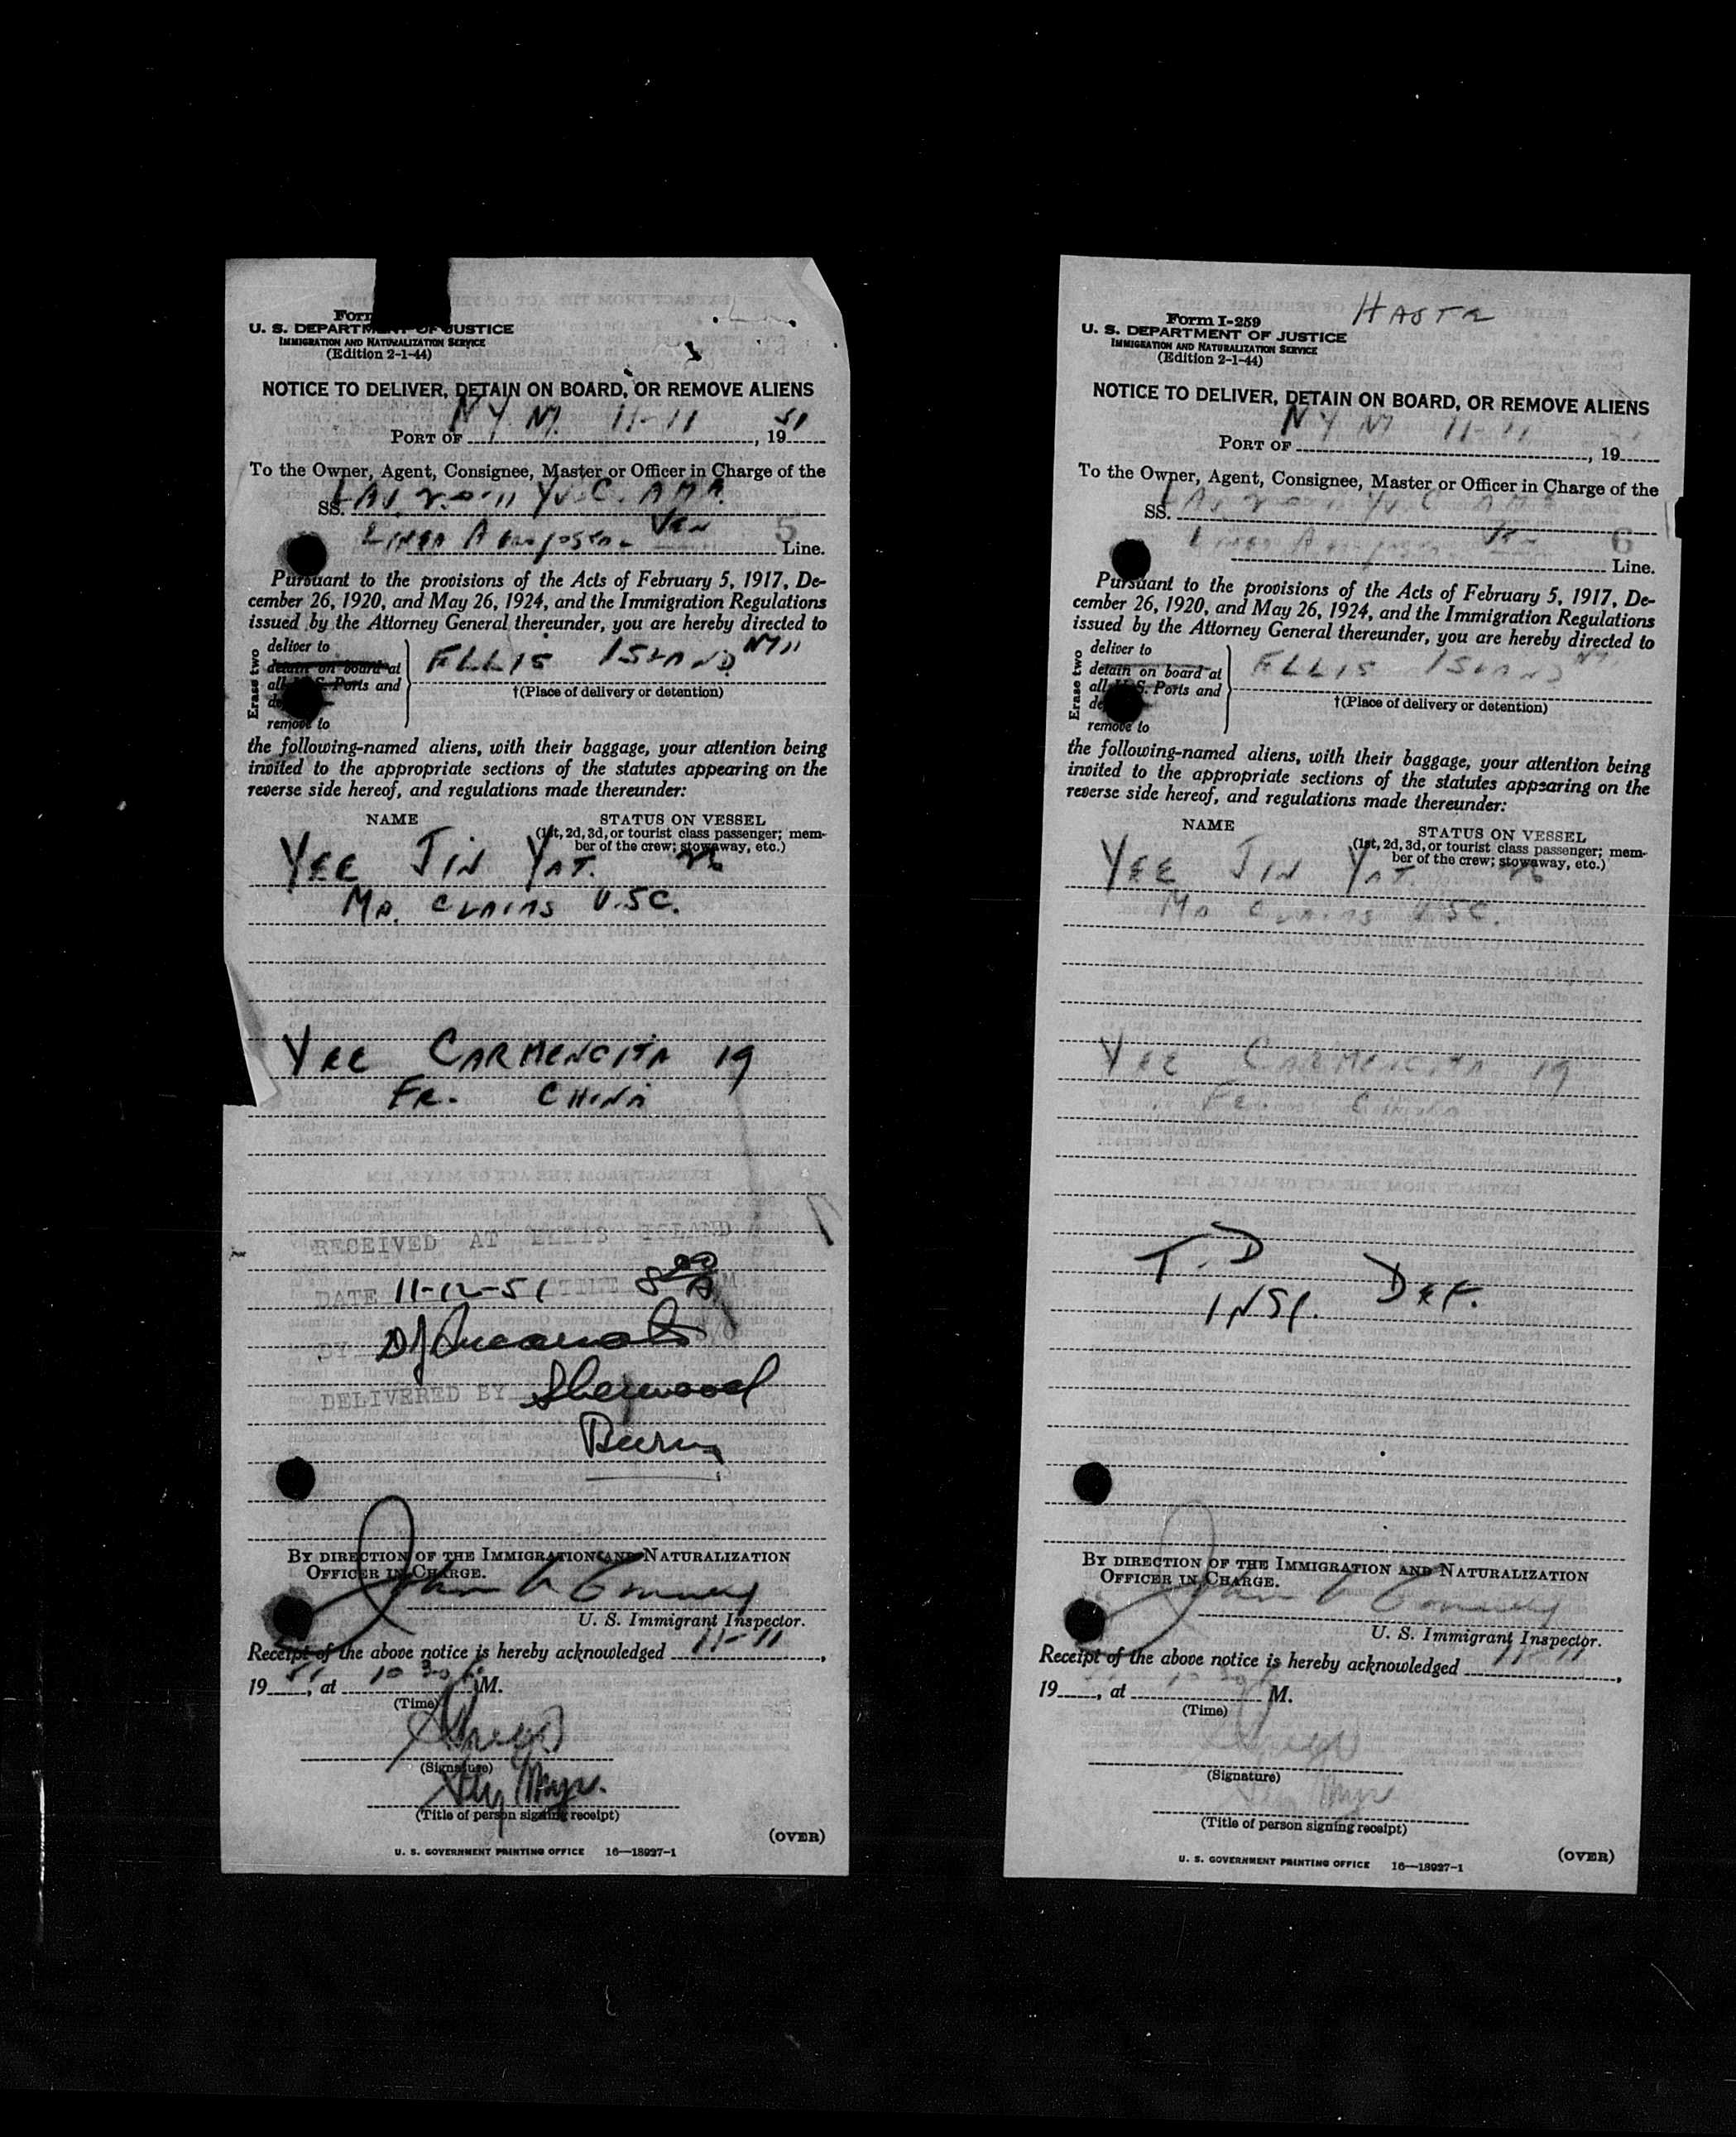 Form
U. S. DEPARTMENT OF JUSTICE
IMMIGRATION AND NATURALIZATION SERVICE
(Edition 2-1-44)
NOTICE TO DELIVER, DETAIN ON BOARD, OR REMOVE ALIENS
PORT OF N Y 11-11, 1951
To the Owner, Agent, Consignee, Master or Officer in Charge of the
SS.
5
Line.
Pursuant to the provisions of the Acts of February 5, 1917, De-
cember 26, 1920, and May 26, 1924, and the Immigration Regulations
issued by the Attorney General thereunder, you are hereby directed to
Erase two
deliver to
detain on board at
all U. S. Ports and
remove to
ELLIS ISLAND
†(Place of delivery or detention)
the following-named aliens, with their baggage, your attention being
invited to the appropriate sections of the statutes appearing on the
reverse side hereof, and regulations made thereunder:
NAME STATUS ON VESSEL
(1st, 2d, 3d, or tourist class passenger; mem-
ber of the crew; stowaway, etc.)
YEE JIN YAT.
CLAIMS U.S.C.
YEE CARMENCITA 19
CHINA
RECEIVED AT ELLIS ISLAND
DATE 11-12-51 TIME 8 00 A M.
BY
DELIVERED BY Sherwood
BY DIRECTION OF THE IMMIGRATION AND NATURALIZATION
OFFICER IN CHARGE.
U. S. Immigrant Inspector.
Receipt of the above notice is hereby acknowledged 11-11,
1951, at 10 30 M.
(Time)
(Signature)
(Title of person signing receipt)
(OVER)
U. S. GOVERNMENT PRINTING OFFICE 16—18927-1
Form I-259
U. S. DEPARTMENT OF JUSTICE
IMMIGRATION AND NATURALIZATION SERVICE
(Edition 2-1-44)
NOTICE TO DELIVER, DETAIN ON BOARD, OR REMOVE ALIENS
PORT OF N Y 11-11, 19
To the Owner, Agent, Consignee, Master or Officer in Charge of the
SS.
6
Line.
Pursuant to the provisions of the Acts of February 5, 1917, De-
cember 26, 1920, and May 26, 1924, and the Immigration Regulations
issued by the Attorney General thereunder, you are hereby directed to
Erase two
deliver to
detain on board at
all U. S. Ports and
remove to
ELLIS ISLAND
†(Place of delivery or detention)
the following-named aliens, with their baggage, your attention being
invited to the appropriate sections of the statutes appearing on the
reverse side hereof, and regulations made thereunder:
NAME STATUS ON VESSEL
(1st, 2d, 3d, or tourist class passenger; mem-
ber of the crew; stowaway, etc.)
YEE JIN YAT.
CLAIMS U.S.C.
YEE CARMENCITA 19
CHINA
T.D
DEF.
BY DIRECTION OF THE IMMIGRATION AND NATURALIZATION
OFFICER IN CHARGE.
U. S. Immigrant Inspector.
Receipt of the above notice is hereby acknowledged 11-11,
19, at 10 30 M.
(Time)
(Signature)
(Title of person signing receipt)
(OVER)
U. S. GOVERNMENT PRINTING OFFICE 16—18927-1